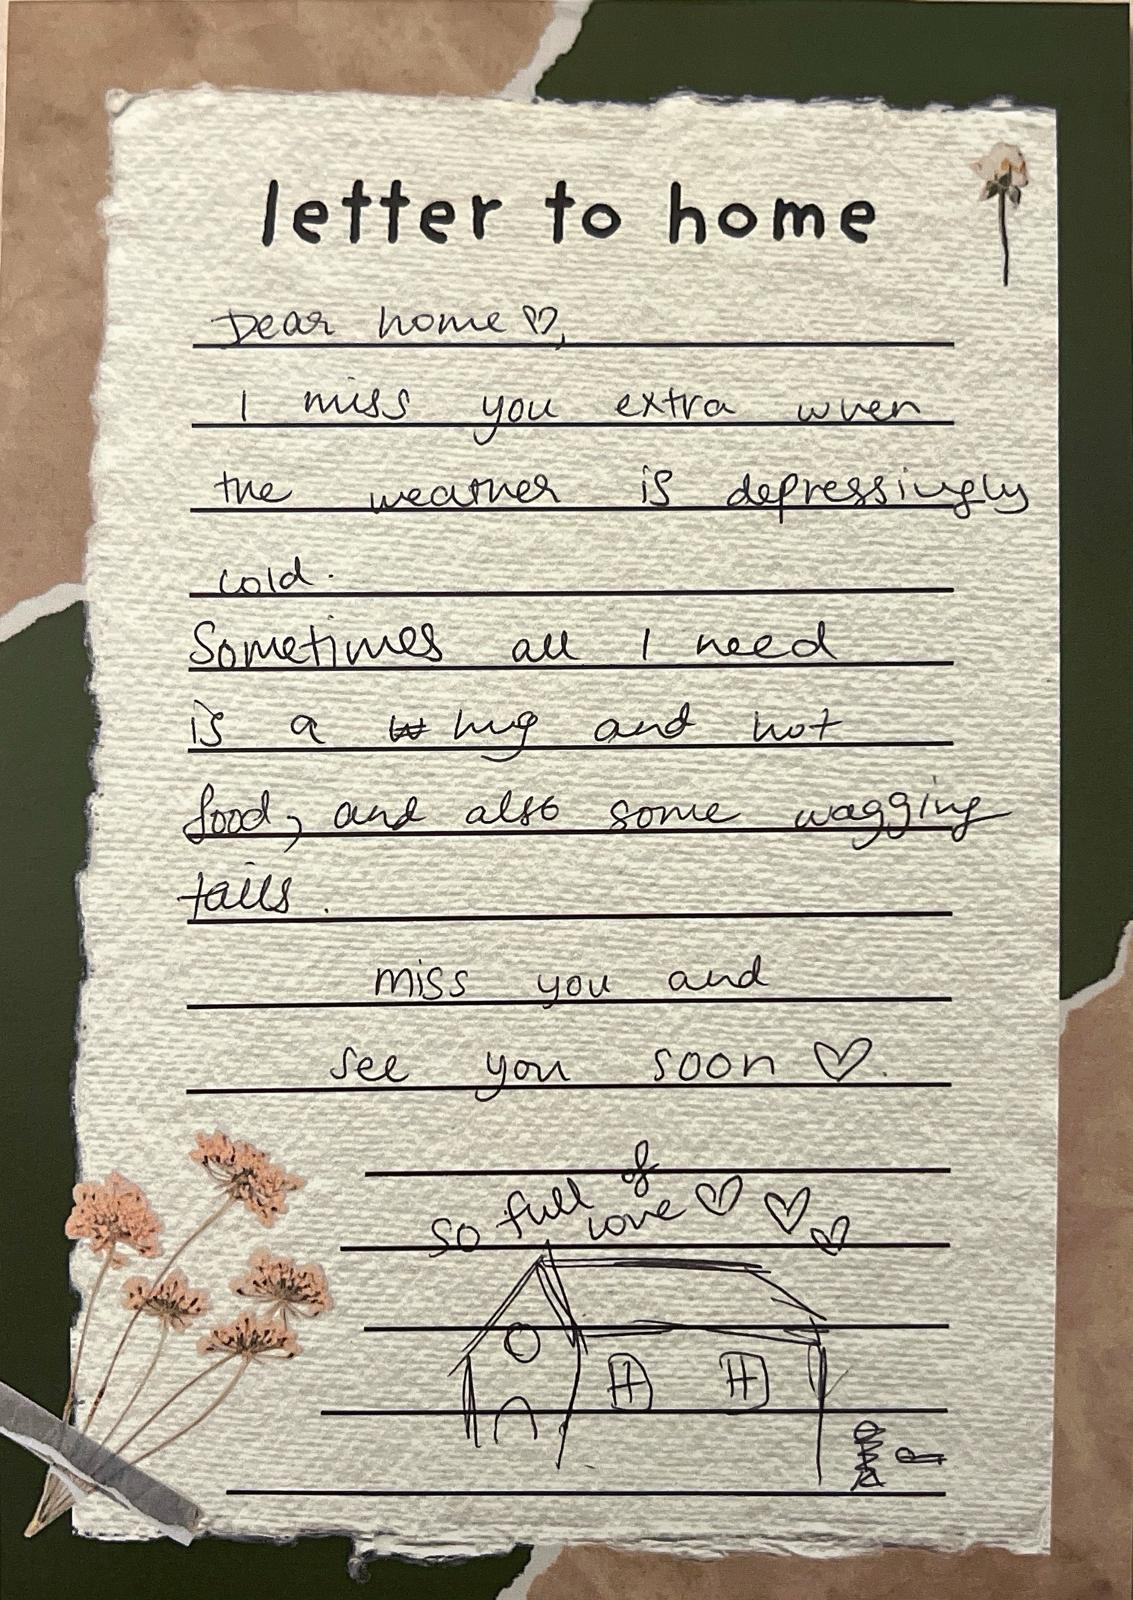 letter to home
Dear home ♡,
I miss you extra when
the weather is depressingly
cold.
Sometimes all I need
is a hug and hot
food, and also some wagging
tails.
miss you and
see you soon ♡.
so full of
love ♡ ♡ ♡